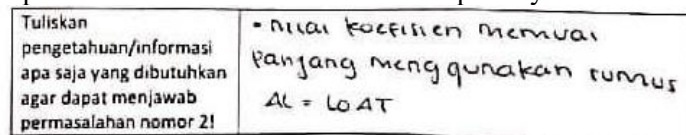 Tuliskan
pengetahuan/informasi
apa saja yang dibutuhkan
agar dapat menjawab
permasalahan nomor 2!
• nilai koefisien memuai
panjang menggunakan rumus
ΔL = L0 ΔT